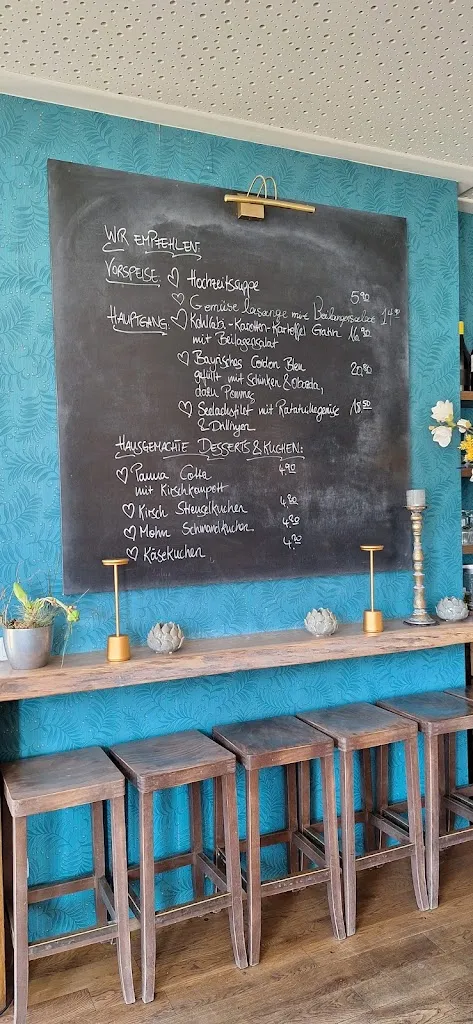 WIR EMPFEHLEN:
VORSPEISE: ♡ Hochzeitsuppe 5,90
♡ Gemüse lasange mit Beilagensalat 14,90
HAUPTGANG: ♡ Kohlrabi-Karotten-Kartoffel Gratin 16,90
mit Beilagensalat
♡ Bayrisches Cordon Bleu 20,90
gefüllt mit Schinken & Obazda,
dazu Pommes
♡ Seelachsfilet mit Ratatuillegemüse 18,50
& Drillingen
HAUSGEMACHTE DESSERTS & KUCHEN:
♡ Panna Cotta 4,90
mit Kirschkompott
♡ Kirsch Streuselkuchen 4,80
♡ Mohn Schmandkuchen 4,80
♡ Käsekuchen 4,20